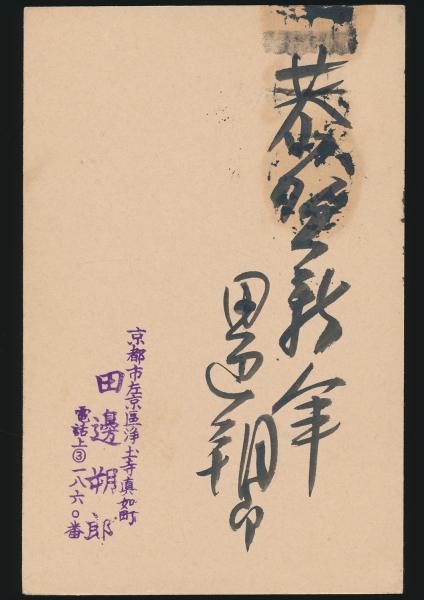 恭賀新年
田邊朔郎
京都市左京區浄土寺真如町
田邊朔郎
電話上③一八六〇番